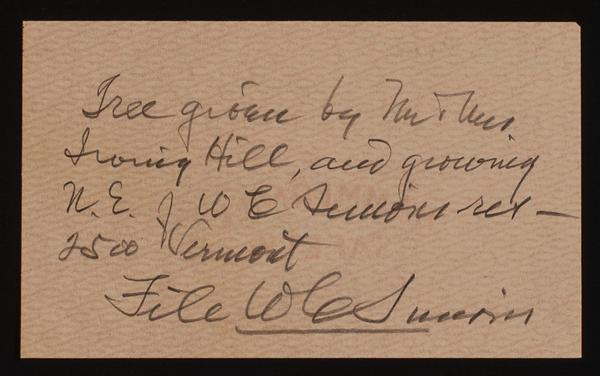 Tree given by Mr & Mrs.
Irving Hill, and growing
N. E. of W C Simons res —
2500 Vermont
File W C Simons